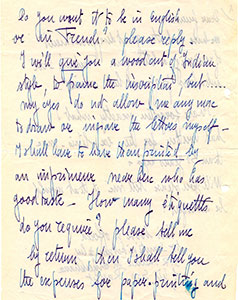 Do you want it to be in english
or in French? please reply.
I will give you a woodcut of Indian
style, to frame the inscription, but....
my eyes do not allow me any more
to draw or engrave the letters myself -
I shall have to have them printed by
an imprimeur near her who has
good taste - How many étiquettes
do you require? please tell me
by return. then I shall tell you
the expenses for paper-printing and